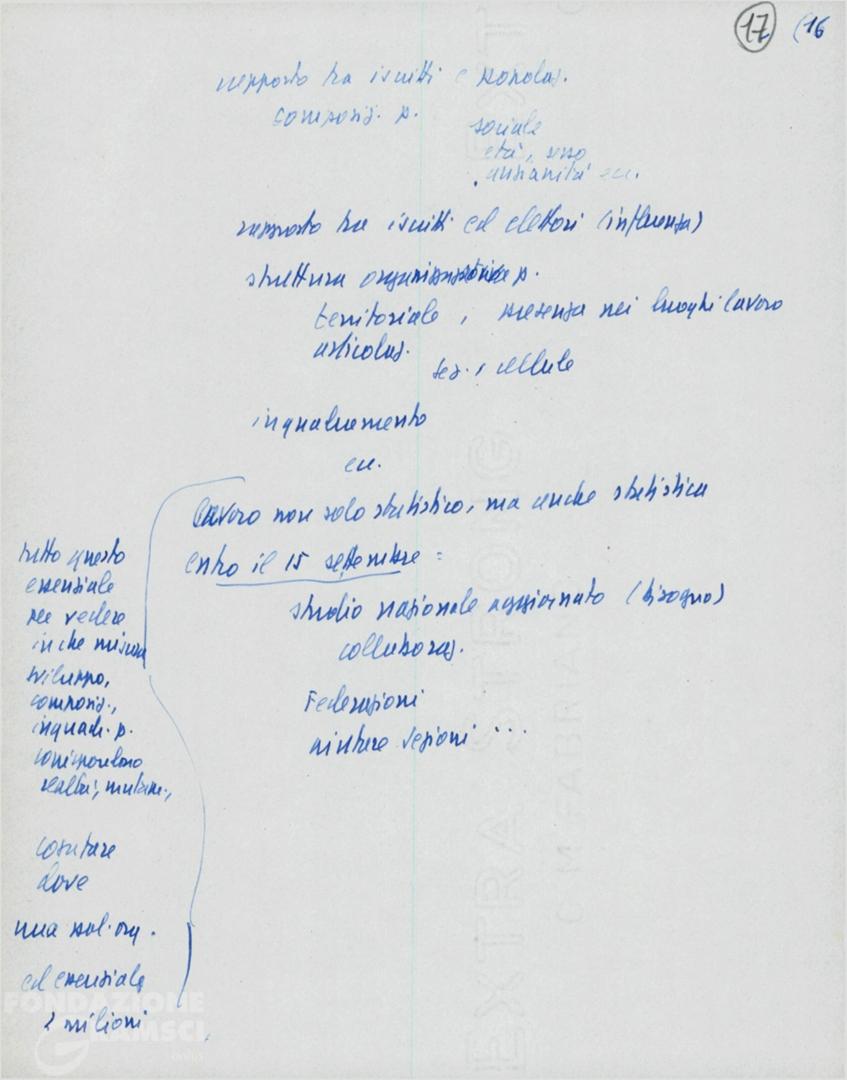 17 (16
rapporto tra iscritti e popolaz.
composiz. p.
sociale
età, sesso
anzianità ecc.
rapporto tra iscritti ed elettori (influenza)
struttura organizzativa p.
territoriale, presenza nei luoghi lavoro
articolaz.
sez., cellule
inquadramento
ecc.
lavoro non solo statistico, ma anche statistica
entro il 15 settembre =
studio nazionale aggiornato (bisogno)
collaboraz.
Federazioni
aiutare sezioni ...
tutto questo
essenziale
per vedere
in che misura
sviluppo,
composiz.,
inquadr. p.
corrispondono
realtà, mutam.,
dove
una pol. org.
ed essenziale
2 milioni
FONDAZIONE
GRAMSCI
EXTRA STRONG
FABRIANO